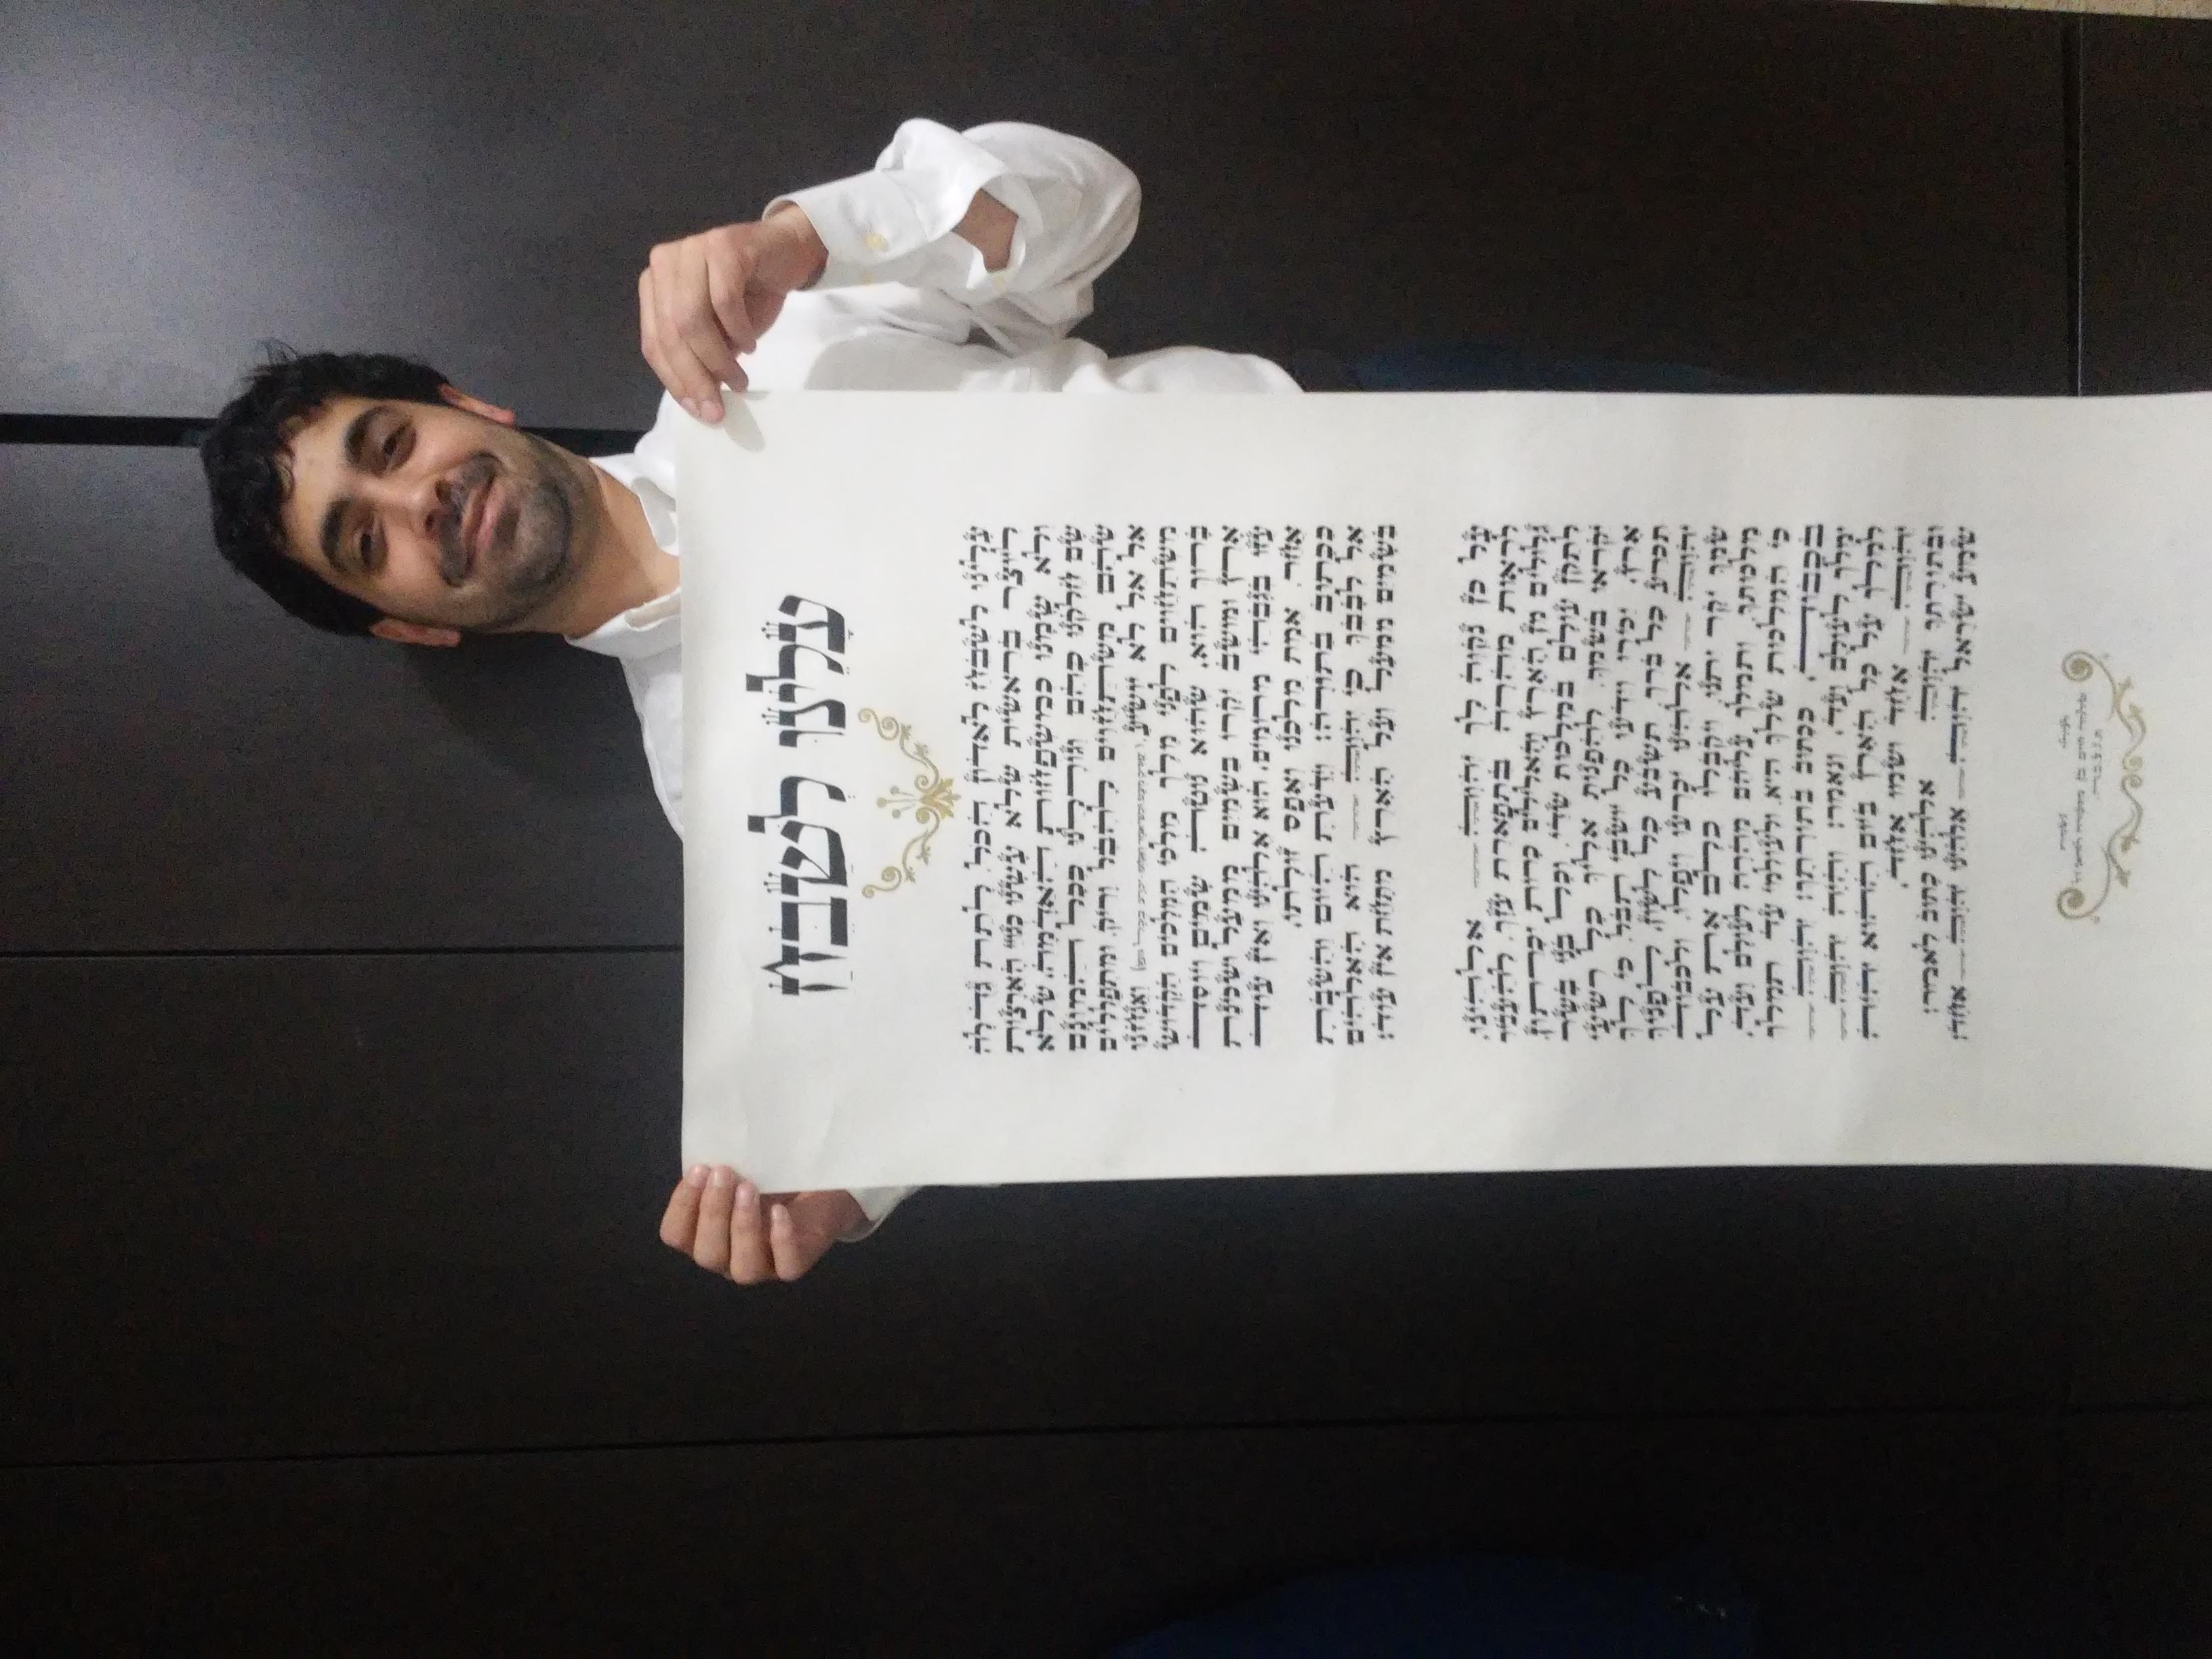 עָלֵינוּ לְשַׁבֵּחַ
עלינו לשבח לאדון הכל. לתת גדולה
ליוצר בראשית שלא עשנו כגויי הארצות
ולא שמנו כמשפחות האדמה. שלא
שם חלקנו כהם וגורלנו ככל המונם
שהם משתחוים להבל וריק. ומתפללים
אל אל לא יושיע. ואנחנו
משתחוים לפני מלך מלכי המלכים הקדוש
ברוך הוא. שהוא נוטה שמים ויוסד
ארץ ומושב יקרו בשמים ממעל ושכינת
עזו בגבהי מרומים. הוא אלהינו ואין עוד
אחר. אמת מלכנו ואפס זולתו.
ככתוב בתורה: וידעת היום והשבת
אל לבבך כי יהוה הוא האלהים
בשמים ממעל ועל הארץ מתחת אין עוד:
על כן נקוה לך יהוה אלהינו.
לראות מהרה בתפארת עזך. להעביר
גלולים מן הארץ והאלילים כרות יכרתון.
לתקן עולם במלכות שדי. וכל בני בשר
יקראו בשמך. להפנות אליך כל רשעי
ארץ. יכירו וידעו כל יושבי תבל. כי לך
תכרע כל ברך. תשבע כל לשון. לפניך
יהוה אלהינו יכרעו ויפלו. ולכבוד
שמך יקר יתנו. ויקבלו כלם את על
מלכותך. ותמלך עליהם מהרה לעולם ועד.
כי המלכות שלך היא. ולעולמי עד תמלך
בכבוד. ככתוב בתורתך: יהוה
ימלך לעולם ועד. ונאמר: והיה יהוה
למלך על כל הארץ ביום ההוא יהיה
יהוה אחד ושמו אחד.
ובתורתך יהוה אלהינו כתוב לאמר:
שמע ישראל יהוה אלהינו יהוה אחד: